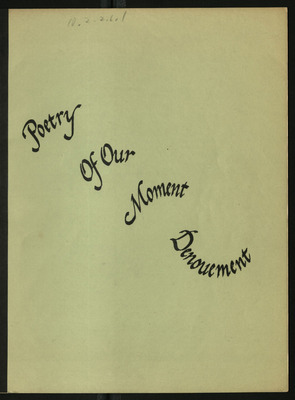 11.2-2.6.1
Poetry
Of Our
Moment
Denouement